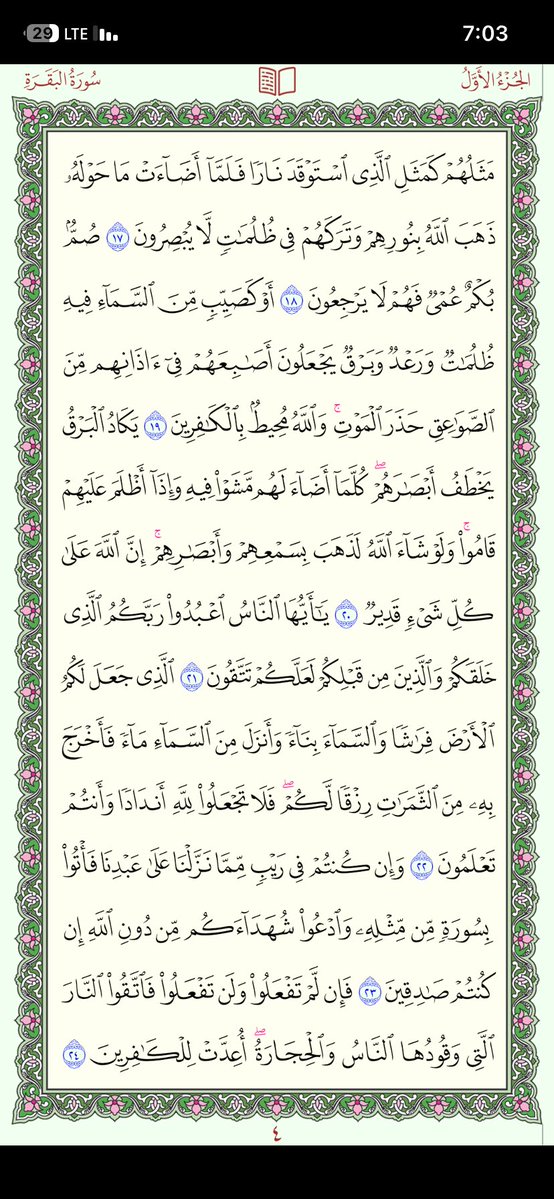 29 LTE 7:03
الجُزْءُ الأَوَّلُ سُورَةُ البَقَرَةِ
مَثَلُهُمْ كَمَثَلِ ٱلَّذِى ٱسْتَوْقَدَ نَارًا فَلَمَّآ أَضَآءَتْ مَا حَوْلَهُۥ
ذَهَبَ ٱللَّهُ بِنُورِهِمْ وَتَرَكَهُمْ فِى ظُلُمَٰتٍ لَّا يُبْصِرُونَ ١٧ صُمٌّۢ
بُكْمٌ عُمْىٌ فَهُمْ لَا يَرْجِعُونَ ١٨ أَوْ كَصَيِّبٍ مِّنَ ٱلسَّمَآءِ فِيهِ
ظُلُمَٰتٌ وَرَعْدٌ وَبَرْقٌ يَجْعَلُونَ أَصَٰبِعَهُمْ فِىٓ ءَاذَانِهِم مِّنَ
ٱلصَّوَٰعِقِ حَذَرَ ٱلْمَوْتِ ۚ وَٱللَّهُ مُحِيطٌۢ بِٱلْكَٰفِرِينَ ١٩ يَكَادُ ٱلْبَرْقُ
يَخْطَفُ أَبْصَٰرَهُمْ ۖ كُلَّمَآ أَضَآءَ لَهُم مَّشَوْا۟ فِيهِ وَإِذَآ أَظْلَمَ عَلَيْهِمْ
قَامُوا۟ ۚ وَلَوْ شَآءَ ٱللَّهُ لَذَهَبَ بِسَمْعِهِمْ وَأَبْصَٰرِهِمْ ۚ إِنَّ ٱللَّهَ عَلَىٰ
كُلِّ شَىْءٍ قَدِيرٌ ٢٠ يَٰٓأَيُّهَا ٱلنَّاسُ ٱعْبُدُوا۟ رَبَّكُمُ ٱلَّذِى
خَلَقَكُمْ وَٱلَّذِينَ مِن قَبْلِكُمْ لَعَلَّكُمْ تَتَّقُونَ ٢١ ٱلَّذِى جَعَلَ لَكُمُ
ٱلْأَرْضَ فِرَٰشًا وَٱلسَّمَآءَ بِنَآءً وَأَنزَلَ مِنَ ٱلسَّمَآءِ مَآءً فَأَخْرَجَ
بِهِۦ مِنَ ٱلثَّمَرَٰتِ رِزْقًا لَّكُمْ ۖ فَلَا تَجْعَلُوا۟ لِلَّهِ أَندَادًا وَأَنتُمْ
تَعْلَمُونَ ٢٢ وَإِن كُنتُمْ فِى رَيْبٍ مِّمَّا نَزَّلْنَا عَلَىٰ عَبْدِنَا فَأْتُوا۟
بِسُورَةٍ مِّن مِّثْلِهِۦ وَٱدْعُوا۟ شُهَدَآءَكُم مِّن دُونِ ٱللَّهِ إِن
كُنتُمْ صَٰدِقِينَ ٢٣ فَإِن لَّمْ تَفْعَلُوا۟ وَلَن تَفْعَلُوا۟ فَٱتَّقُوا۟ ٱلنَّارَ
ٱلَّتِى وَقُودُهَا ٱلنَّاسُ وَٱلْحِجَارَةُ ۖ أُعِدَّتْ لِلْكَٰفِرِينَ ٢٤
٤